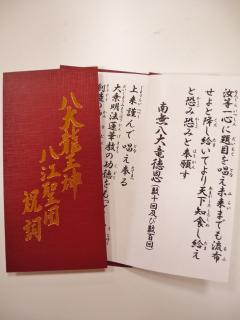 八大龍王神
八江聖団
祝詞
汝等一心に題目を唱え未来までも流布
せよと降し給いてより天下知食し給え
と恐み恐みと奉願す
南無八大竜徳恩（数十回及び数百回）
上来謹んで唱え奉る
大乗妙法蓮華教の功徳をもって